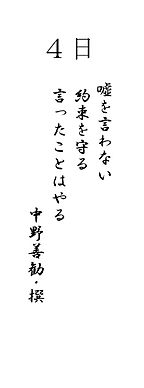 4日
嘘を言わない
約束を守る
言ったことはやる
中野善勧・撰